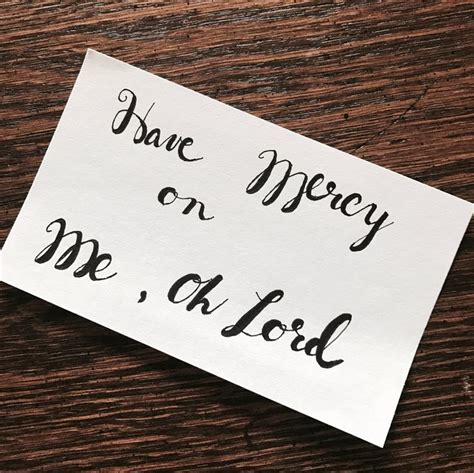 Have Mercy
on
Me, Oh Lord